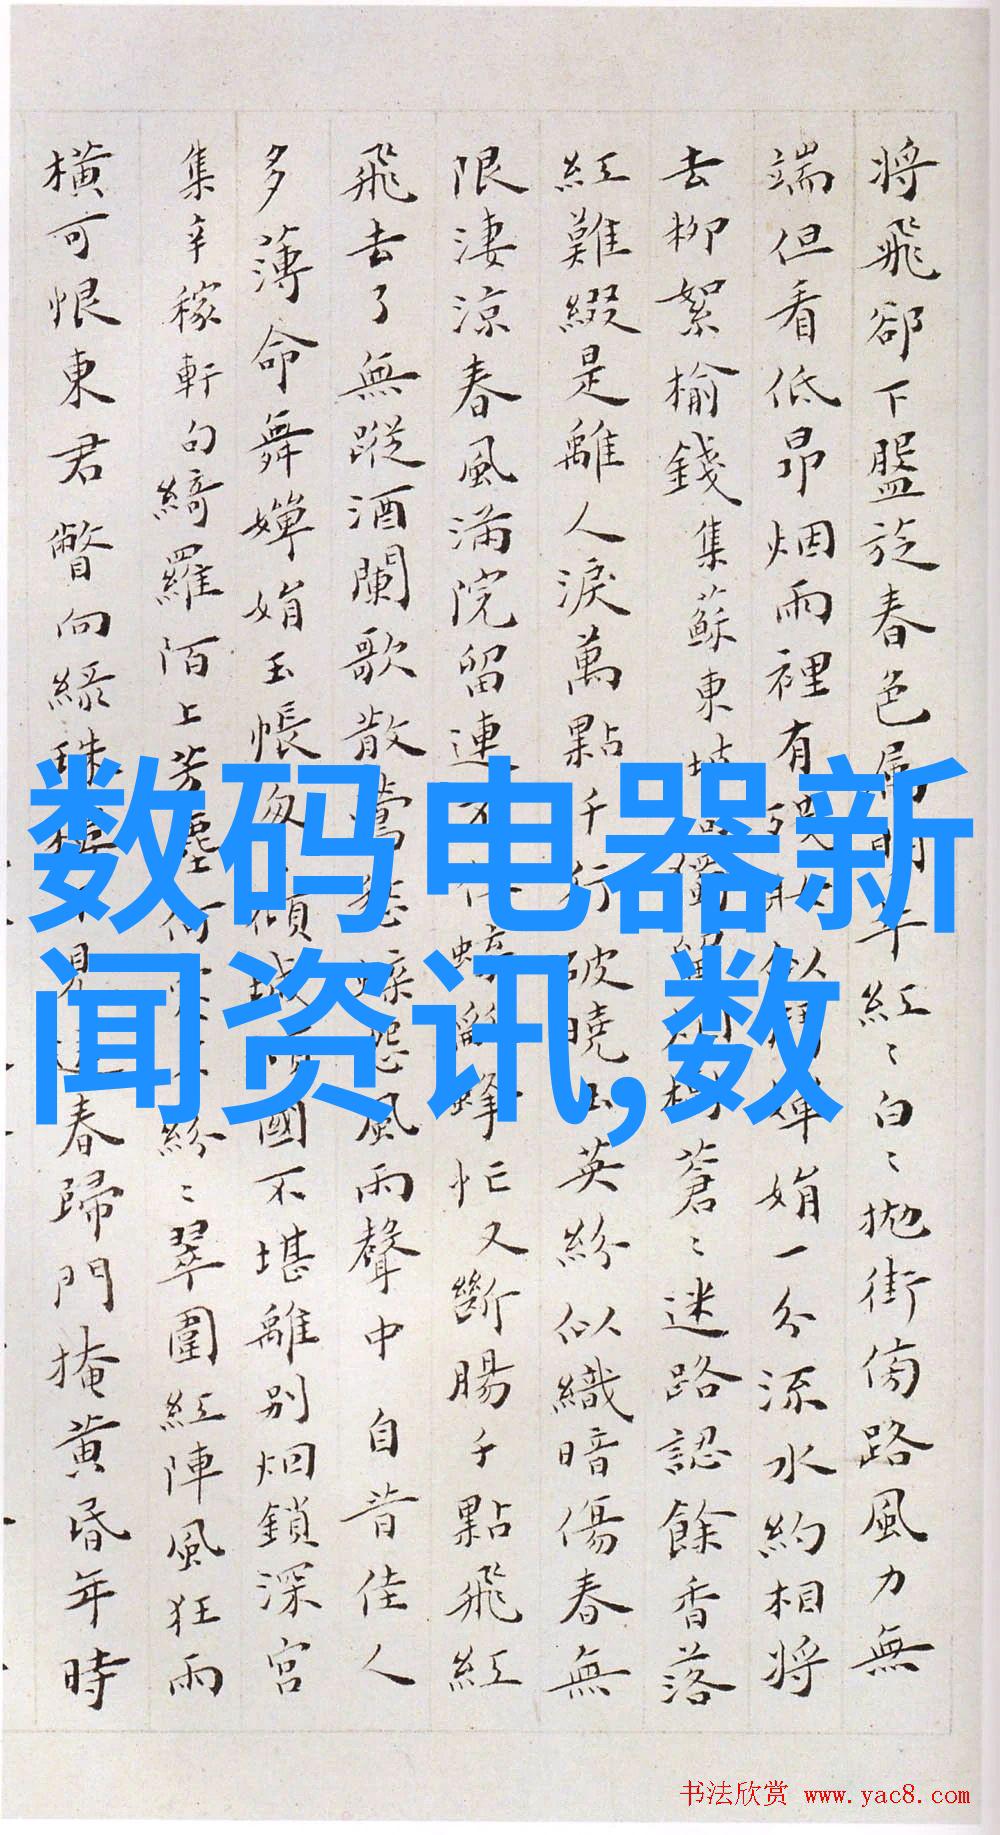 將飛卻下盤旋春色屬明年紅〻白〻拋街傍路風力無
端但看低昂烟雨裡有似嬋娟一分流水約相將
去柳絮榆錢集蘇東坡蒼〻迷路認餘香落
紅難綴是離人淚萬點千行破曉玉英紛似織暗傷春無
限淒涼春風滿院留連不住蜂忙又斷腸千點飛紅
飛去了無蹤酒闌歌散鶯愁蝶怨風雨聲中 自昔佳人
多薄命舞嬋娟玉帳匆傾城傾國不堪離別烟鎖深宮
集辛稼軒句綺羅陌上芳塵何紛〻翠圍紅陣風狂雨
橫可恨東君瞥向緑珠樓不見送春歸門掩黃昏年時
数码电器新
闻资讯,数
书法欣赏 www.yac8.com